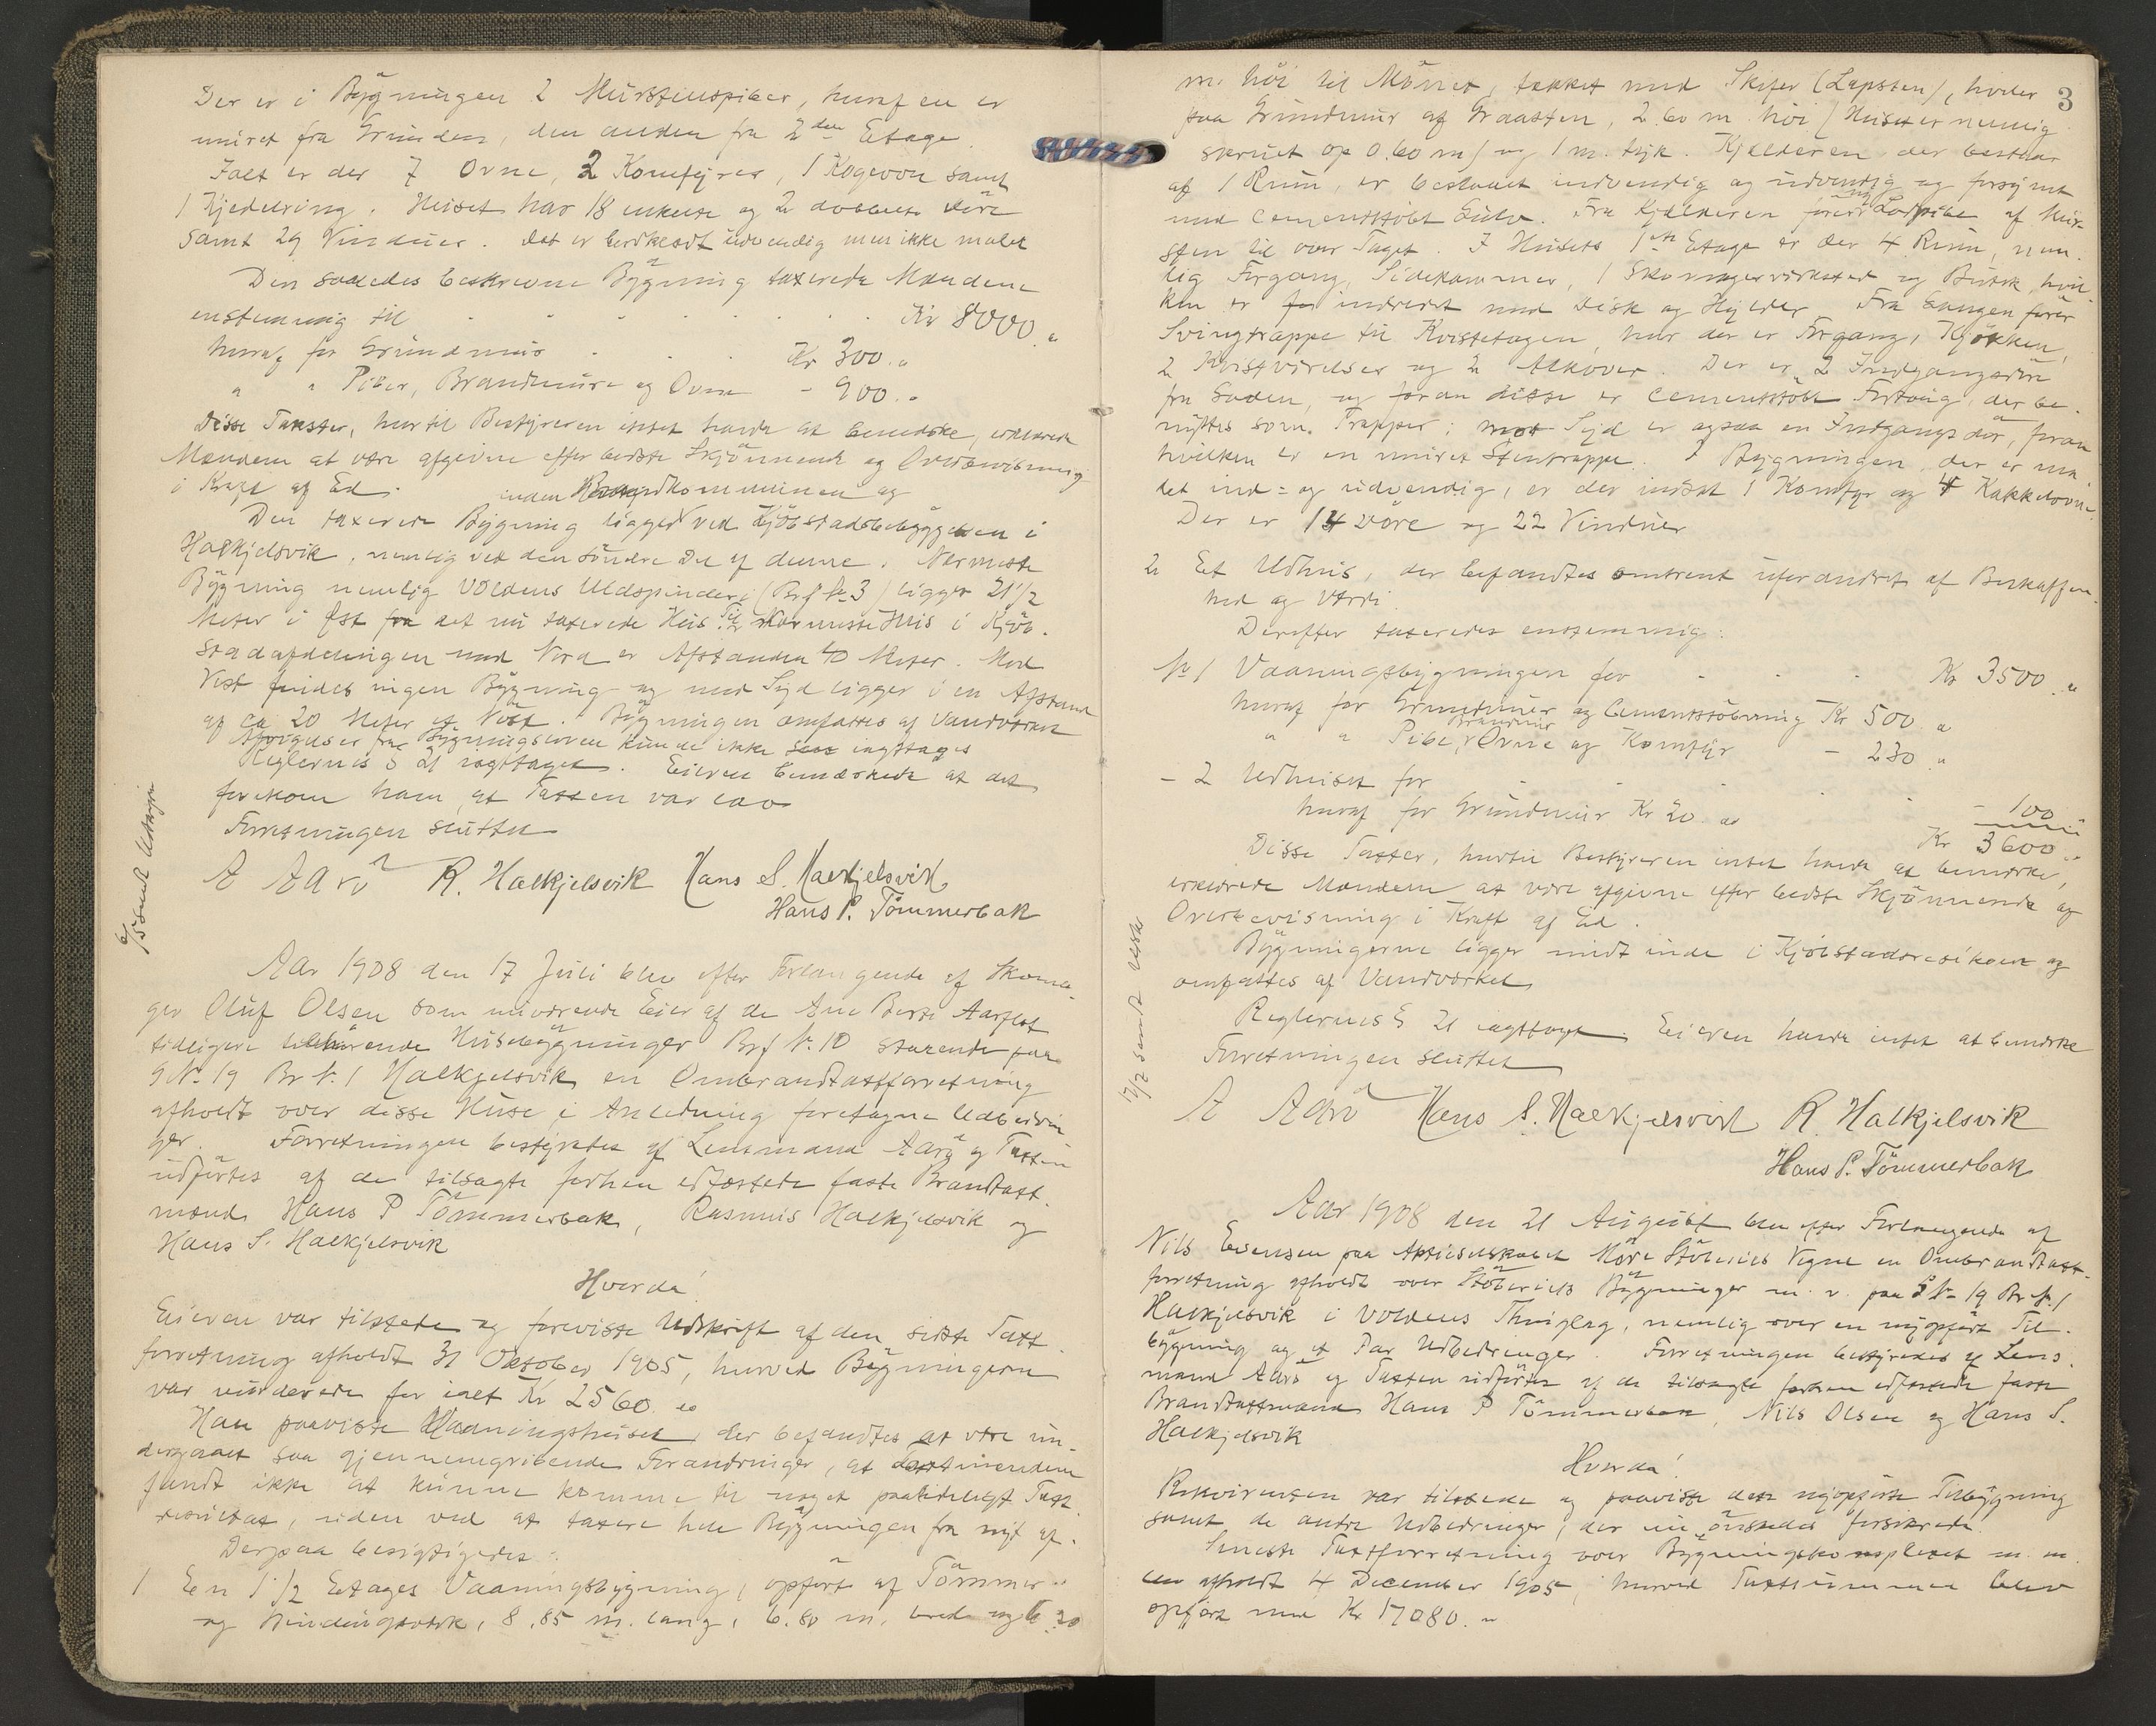 Der er i Bygningen 2 Murstenspiber, hvoraf en er
muret fra Grunden, den anden fra 2den Etage.
Ialt er der 7 Ovne, 2 Komfyrer, 1 Kogeovn samt
1 Kjedelring. Huset har 18 enkelte og 2 dobbelte Döre
samt 29 Vinduer. Det er bordklædt udvendig men ikke malet
Den saaledes beskrevne Bygning taxerede Mændene
enstemmig til . . . . . . . Kr 8000.„
hvoraf for Grundmur . . . Kr 300.„
„ „ Piber, Brandmure og Ovne - 900.„
Disse Taxster, hvortil Bestyreren intet havde at bemærke, erklærede
Mændene at være afgivne efter bedste Skjönnende og Overbevisning
i Kraft af Ed.
inden Brandkommunen og
Den taxerede Bygning ligger ved Kjöbstadsbebyggelsen i
Halkjelsvik, nemlig ved den söndre Del af denne. Nærmeste
Bygning nemlig Voldens Uldspinderi (Brf № 3) ligger 21½
Meter i Öst fra det nu taxerede Hus. Til Nærmeste Hus i Kjöb-
stadafdelingen mod Nord er Afstanden 40 Meter. Mod
Vest findes ingen Bygning og mod Syd ligger i en Afstand
af ca 20 Meter et Nöst. Bygningen omfattes af Vandværket
Afvigelser fra Bygningsloven kunde ikke sees iagttages
Reglernes § 21 iagttaget. Eieren bemærkede at det
forekom ham, at Taxten var lav
Forretningen sluttet
A Aarö R. Halkjelsvik Hans S. Halkjelsvik
Hans P. Tömmerbak
sendt Udskrift
Aar 1908 den 17 Juli blev efter Forlangende af Skoma-
ger Oluf Olsen som nuværende Eier af de Ane Berte Aarflot
tidligere tilhörende Husebygninger Brf № 10 staaende paa
G№ 19 Br№ 1 Halkjelsvik en Ombrandtaxtforretning
afholdt over disse Huse i Anledning foretagne Udbedrin-
ger. Forretningen bestyredes af Lensmand Aarö og Taxten
udfördes af de tilsagte forhen edfæstede faste Brandtaxt-
mænd Hans P Tömmerbak, Rasmus Halkjelsvik og
Hans S. Halkjelsvik
Hvorda!
Eieren var tilstede og foreviste Udskrift af den sidste Taxt-
forretning afholdt 31 Oktober 1905, hvorved Bygningerne
var vurderede for ialt Kr 2560.„
Han paaviste Vaaningshuset, der befandtes at være un-
dergaaet saa gjennemgribende Forandringer, at Taxtmændene
fandt ikke at kunne komme til noget paalideligt Taxt-
resultat, uden ved at taxere hele Bygningen fra nyt af.
Derpaa besigtigedes:
1 En 1½ Etages Vaaningsbygning, opfört af Tömmer
og Bindingsværk, 8.85 m. lang, 6.80 m. bred og 6.20
3
m. höi til Mönet, tækket med Skifer (Lapsten), hviler
paa Grundmur af Graasten, 2.60 m. höi (Huset er nemlig
skruet op 0.60 m) og 1 m. tyk. Kjælderen der bestaar
af 1 Rum, er beslaaet indvendig og udvendig og forsynet
med cementstöbt Gulv. Fra Kjælderen förer ny Lodpibe af Mur-
sten til over Taget. I Husets 1ste Etage er der 4 Rum, nem-
lig Forgang, Sidekammer, 1 Skomagerverksted og Butik, hvil-
ken er for indredet med Disk og Hylder. Fra Gangen förer
Svingtrappe til Kvistetagen, hvor der er Forgang, Kjökken,
2 Kvistværelser og 2 Alkover. Der er 2 Indgangsdöre
fra Gaden, og foran disse er cementstöbt Fortoug, der be-
nyttes som Trapper; mod Syd er ogsaa en Indgangsdör, foran
hvilken er en muret Stentrappe. I Bygningen, der er ma-
let ind- og udvendig, er der indsat 1 Komfyr og 4 Kakkelovne.
Der er 14 Döre og 22 Vinduer
2 Et Udhus, der befandtes omtrent uforandret af Beskaffen-
hed og Værdi.
Derefter taxeredes enstemmig:
№ 1 Vaaningsbygningen for . . . Kr 3500.„
hvoraf for Grundmur og Cementstöbning Kr 500 „
„ „ Pibe, Brandmur, Ovne og Komfyr - 230 „
- 2 Udhuset for . . . . . - 100 „
hvoraf for Grundmur Kr 20.„
Kr 3600.„
Disse Taxter, hvortil Bestyreren intet havde at bemærke,
erklærede Mændene at være afgivne efter bedste Skjönnende og
Overbevisning i Kraft af Ed.
Bygningerne ligger midt inde i Kjöbstadsrisikoen og
omfattes af Vandværket
Reglernes § 21 iagttoges. Eieren havde intet at bemærke
Forretningen sluttet
A Aarö Hans S. Halkjelsvik R. Halkjelsvik
Hans P. Tömmerbak
17/7 sendt Udskr
Aar 1908 den 21 August blev efter Forlangende af
Nils Evensen paa Aktieselskabet Möre Stöberies Vegne en Ombrandtaxt-
forretning afholdt over Stöberiets Bygninger m. v. paa G№ 19 Br№ 1
Halkjelsvik i Voldens Thinglag, nemlig over en nyopfört Til-
bygning og et Par Udbedringer. Forretningen bestyredes af Lens-
mand Aarö og Taxten udförtes af de tilsagte forhen edfæstede faste
Brandtaxtmænd Hans P Tömmerbak, Nils Olsen og Hans S.
Halkjelsvik
Hvorda!
Rekvirenten var tilstede og paaviste den nyopförte Tilbygning
samt de andre Udbedringer, der nu önskedes forsikrede.
Seneste Taxtforretning over Bygningskomplexet m. m.
blev afholdt 4 December 1905, hvorved Taxtsummen blev
opfört med Kr 17080.„